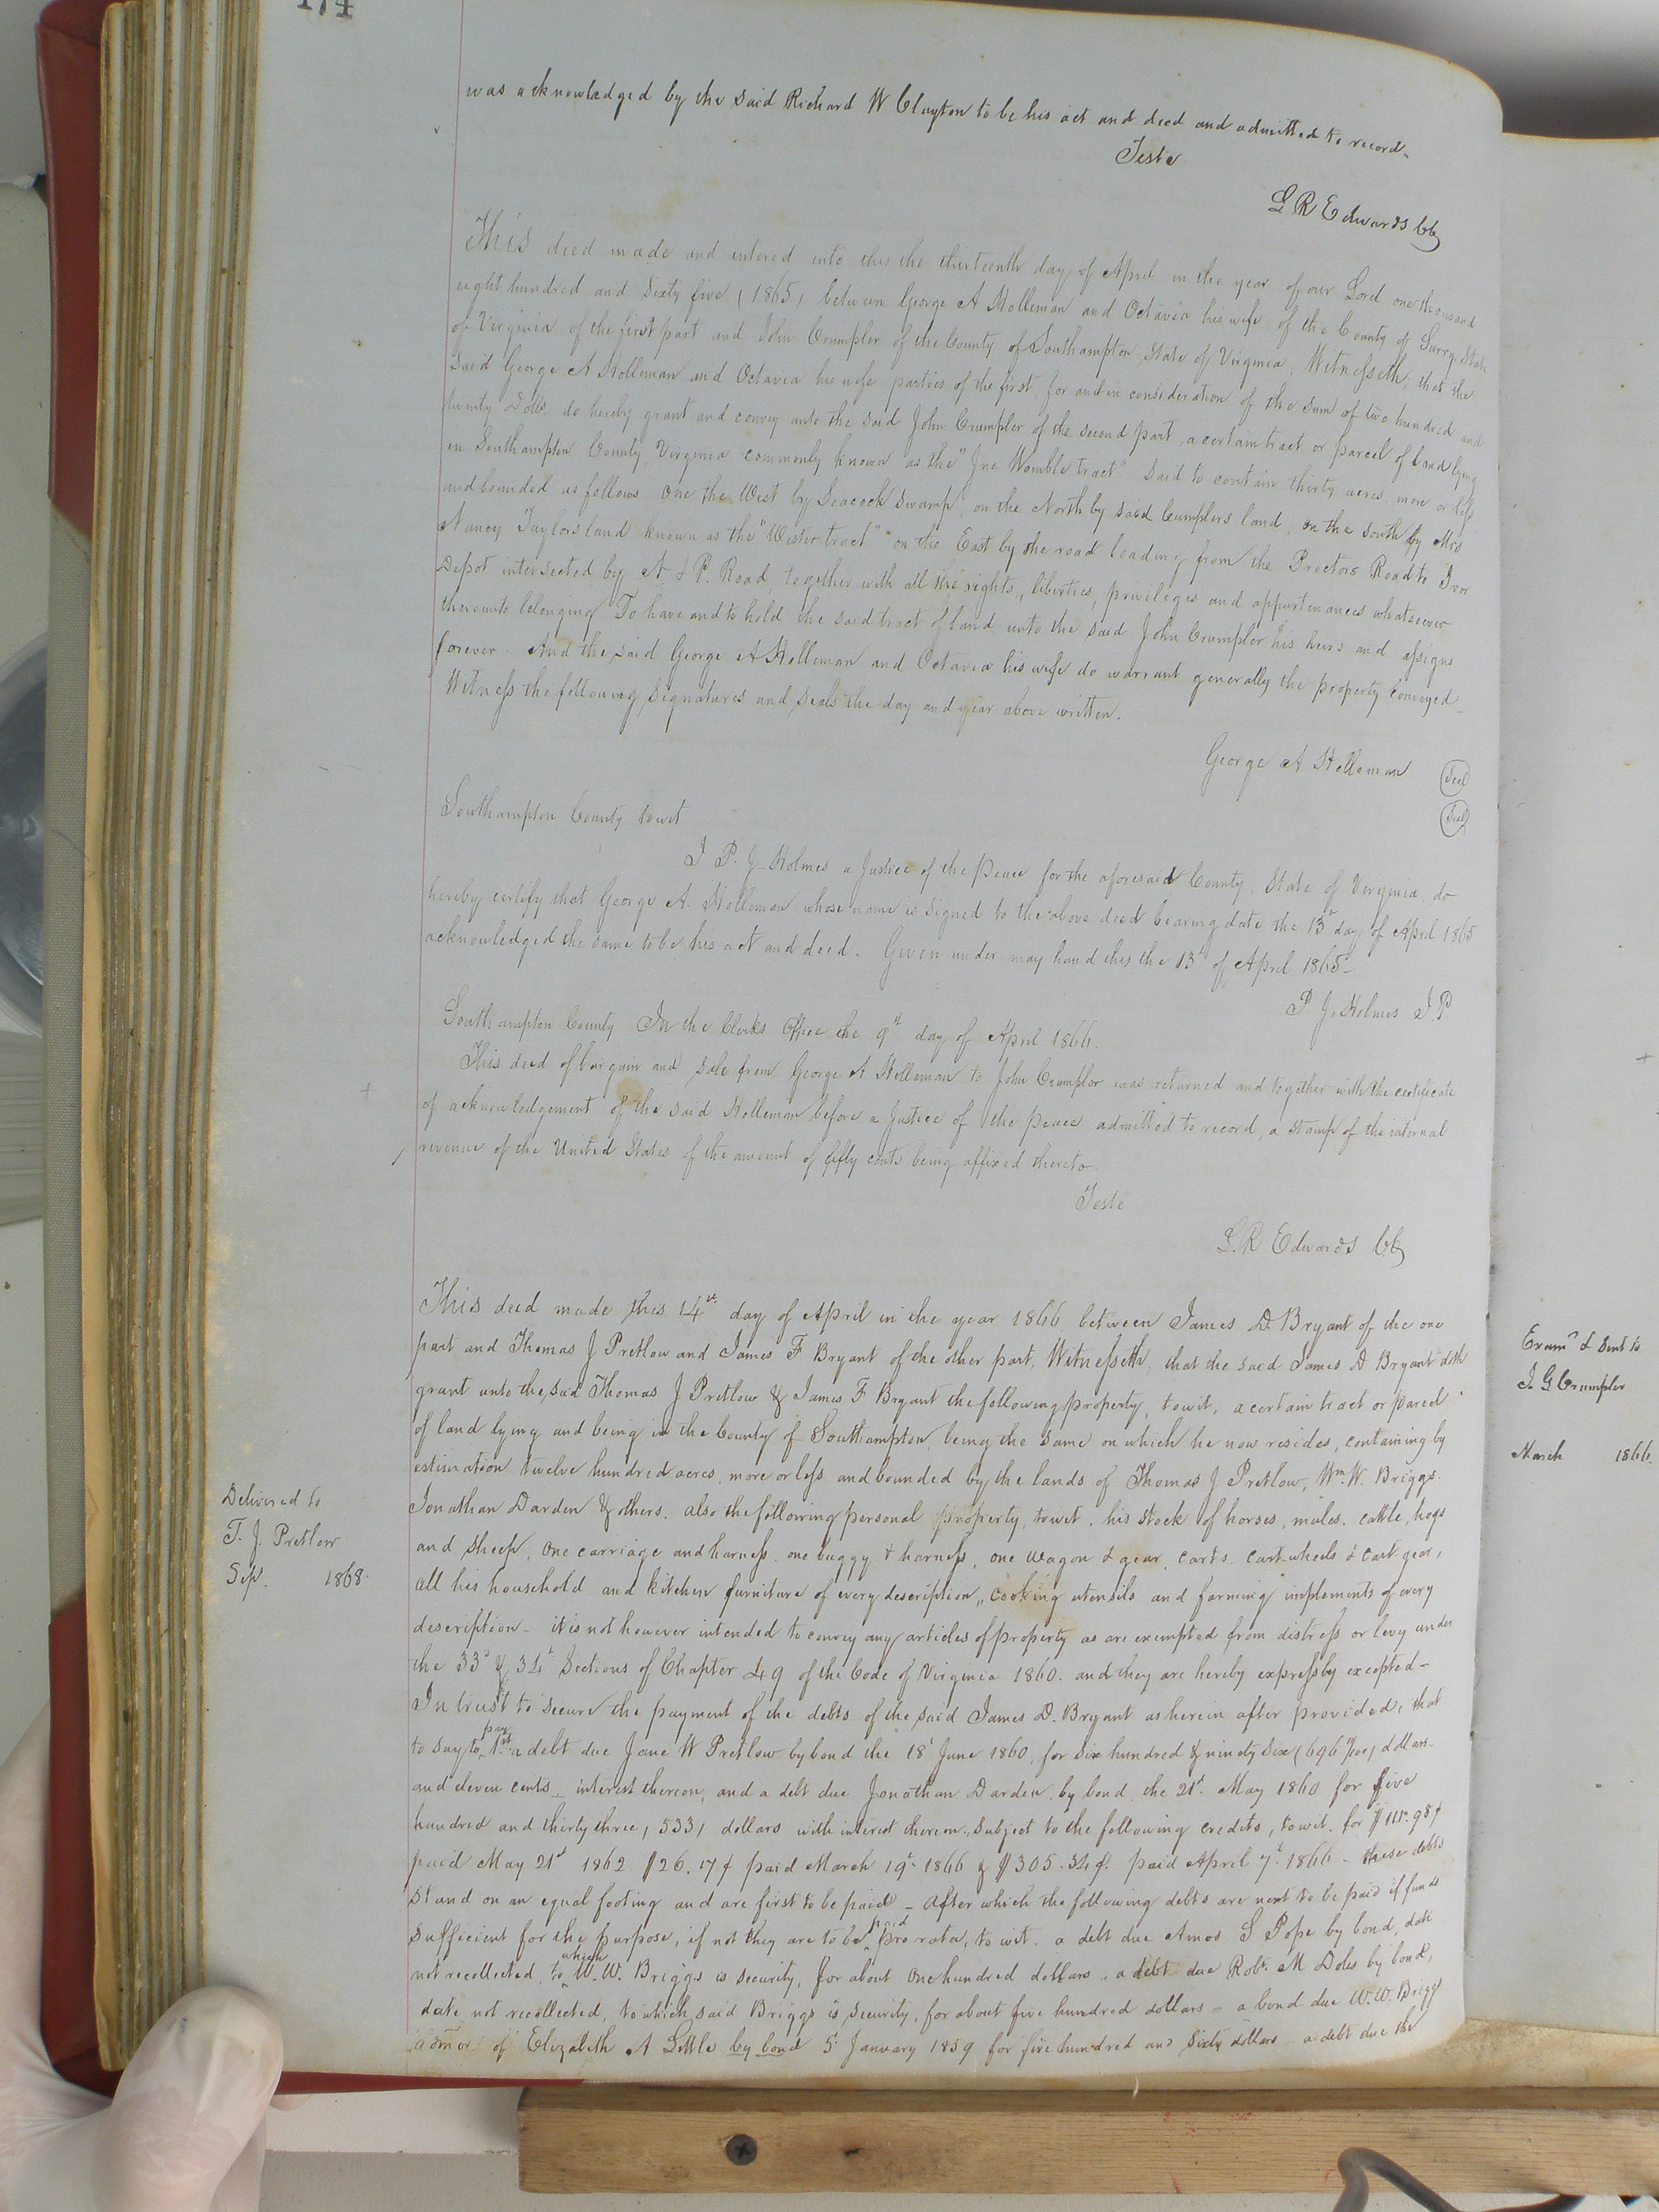 174
was acknowledged by the said Richard W Clayton to be his act and deed and admitted to record.
Teste
L R Edwards CC
This deed made and entered into this the thirteenth day of April in the year of our Lord one thousand
eight hundred and sixty five (1865) between George A Holleman and Octavia his wife of the County of Surry State
of Virginia of the first part and John Crumpler of the County of Southampton State of Virginia. Witnesseth, that the
said George A Holleman and Octavia his wife parties of the first, for and in consideration of the sum of two hundred and
twenty Dolls. do hereby grant and convey unto the said John Crumpler of the second part, a certain tract or parcel of land lying
in Southampton County, Virginia commonly known as the "Jno. Womble tract" said to contain thirty acres more or less
and bounded as follows One the West by Seacock swamp, on the North by said Cumplers land, on the south by Mrs
Nancy Taylors land known as the "Wester tract" on the East by the road leading from the Proctors Road to Ivor
Depot intersected by N. & P. Road, together with all the rights, liberties, privileges and appurtenances whatsoever
thereunto belonging To have and to hold the said tract of land unto the said John Crumpler his heirs and assigns
forever. And the said George A Holleman and Octavia his wife do warrant generally the property conveyed
Witness the following signatures and seals the day and year above written.
George A Holleman Seal
Seal
Southampton County towit
I P. J. Holmes a Justice of the Peace for the aforesaid County, State of Virginia, do
hereby certify that George A. Holleman whose name is signed to the above deed bearing date the 13th day of April 1865
acknowledged the same to be his act and deed. Given under may hand this the 13th of April 1865-
P. J. Holmes J.P
Southampton County In the Clerks Office the 9th day of April 1866.
This deed of bargain and sale from George A Holleman to John Crumpler was returned and together with the certificate
of acknowledgement of the said Holleman before a Justice of the peace admitted to record, a stamp of the internal
revenue of the United States of the amount of fifty cents being affixed thereto
Teste
L. R Edwards CC
This deed made this 14th day of April in the year 1866, between James D. Bryant of the one
part and Thomas J Pretlow and James F Bryant of the other part, Witnesseth, that the said James D Bryant doth
grant unto the said Thomas J Pretlow & James F Bryant the following property, towit, a certain tract or parcel
of land lying and being in the County of Southampton, being the same on which he now resides, containing by
estimation twelve hundred acres, more or less and bounded by the lands of Thomas J Pretlow, Wm. W. Briggs.
Jonathan Darden & others. also the following personal property, towit. his stock of horses, mules. cattle, hogs
and sheep, one carriage and harness. one buggy & harness, one wagon & gear, carts. cart-wheels & cart gear,
all his household and kitchen furniture of every description, cooking utensils and farming implements of every
description - it is not however intended to convey any articles of property as are exempted from distress or levy under
the 33d & 34th Sections of Chapter 49 of the Code of Virginia 1860. and they are hereby expressly excepted -
In trust to secure the payment of the debts of the said James D. Bryant as herein after provided, that
to say to pay 1st a debt due Jane W Pretlow by bond the 18th June 1860, for six hundred & ninety six (696 11/100) dollars
and eleven cents - interest thereon, and a debt due Jonathan Darden, by bond, the 21st. May 1860 for five
hundred and thirty three, (533) dollars with interest thereon. Subject to the following credits, towit. for $111.98¢
paid May 21st 1862 $26.17¢ paid March 19th 1866 & $305.34¢. paid April 7th 1866 - these debts
stand on an equal footing and are first to be paid - after which the following debts are next to be paid if funds
sufficient for the purpose, if not they are to be paid pro rata, to wit. a debt due Amos S Pope by bond, date
not recollected, to which W. W. Briggs is security, for about One hundred dollars. a debt due Robt. M Doles by bond,
date not recollected, to which said Briggs is security, for about five hundred dollars - a bond due W. W. Briggs
admor. of Elizabeth A Little by bond 5th January 1859 for five hundred and sixty dollars - a debt due the
Delivered to
T. J. Pretlow
Sep. 1868.
Exam'd & sent to
J. G Crumpler
March 1866.